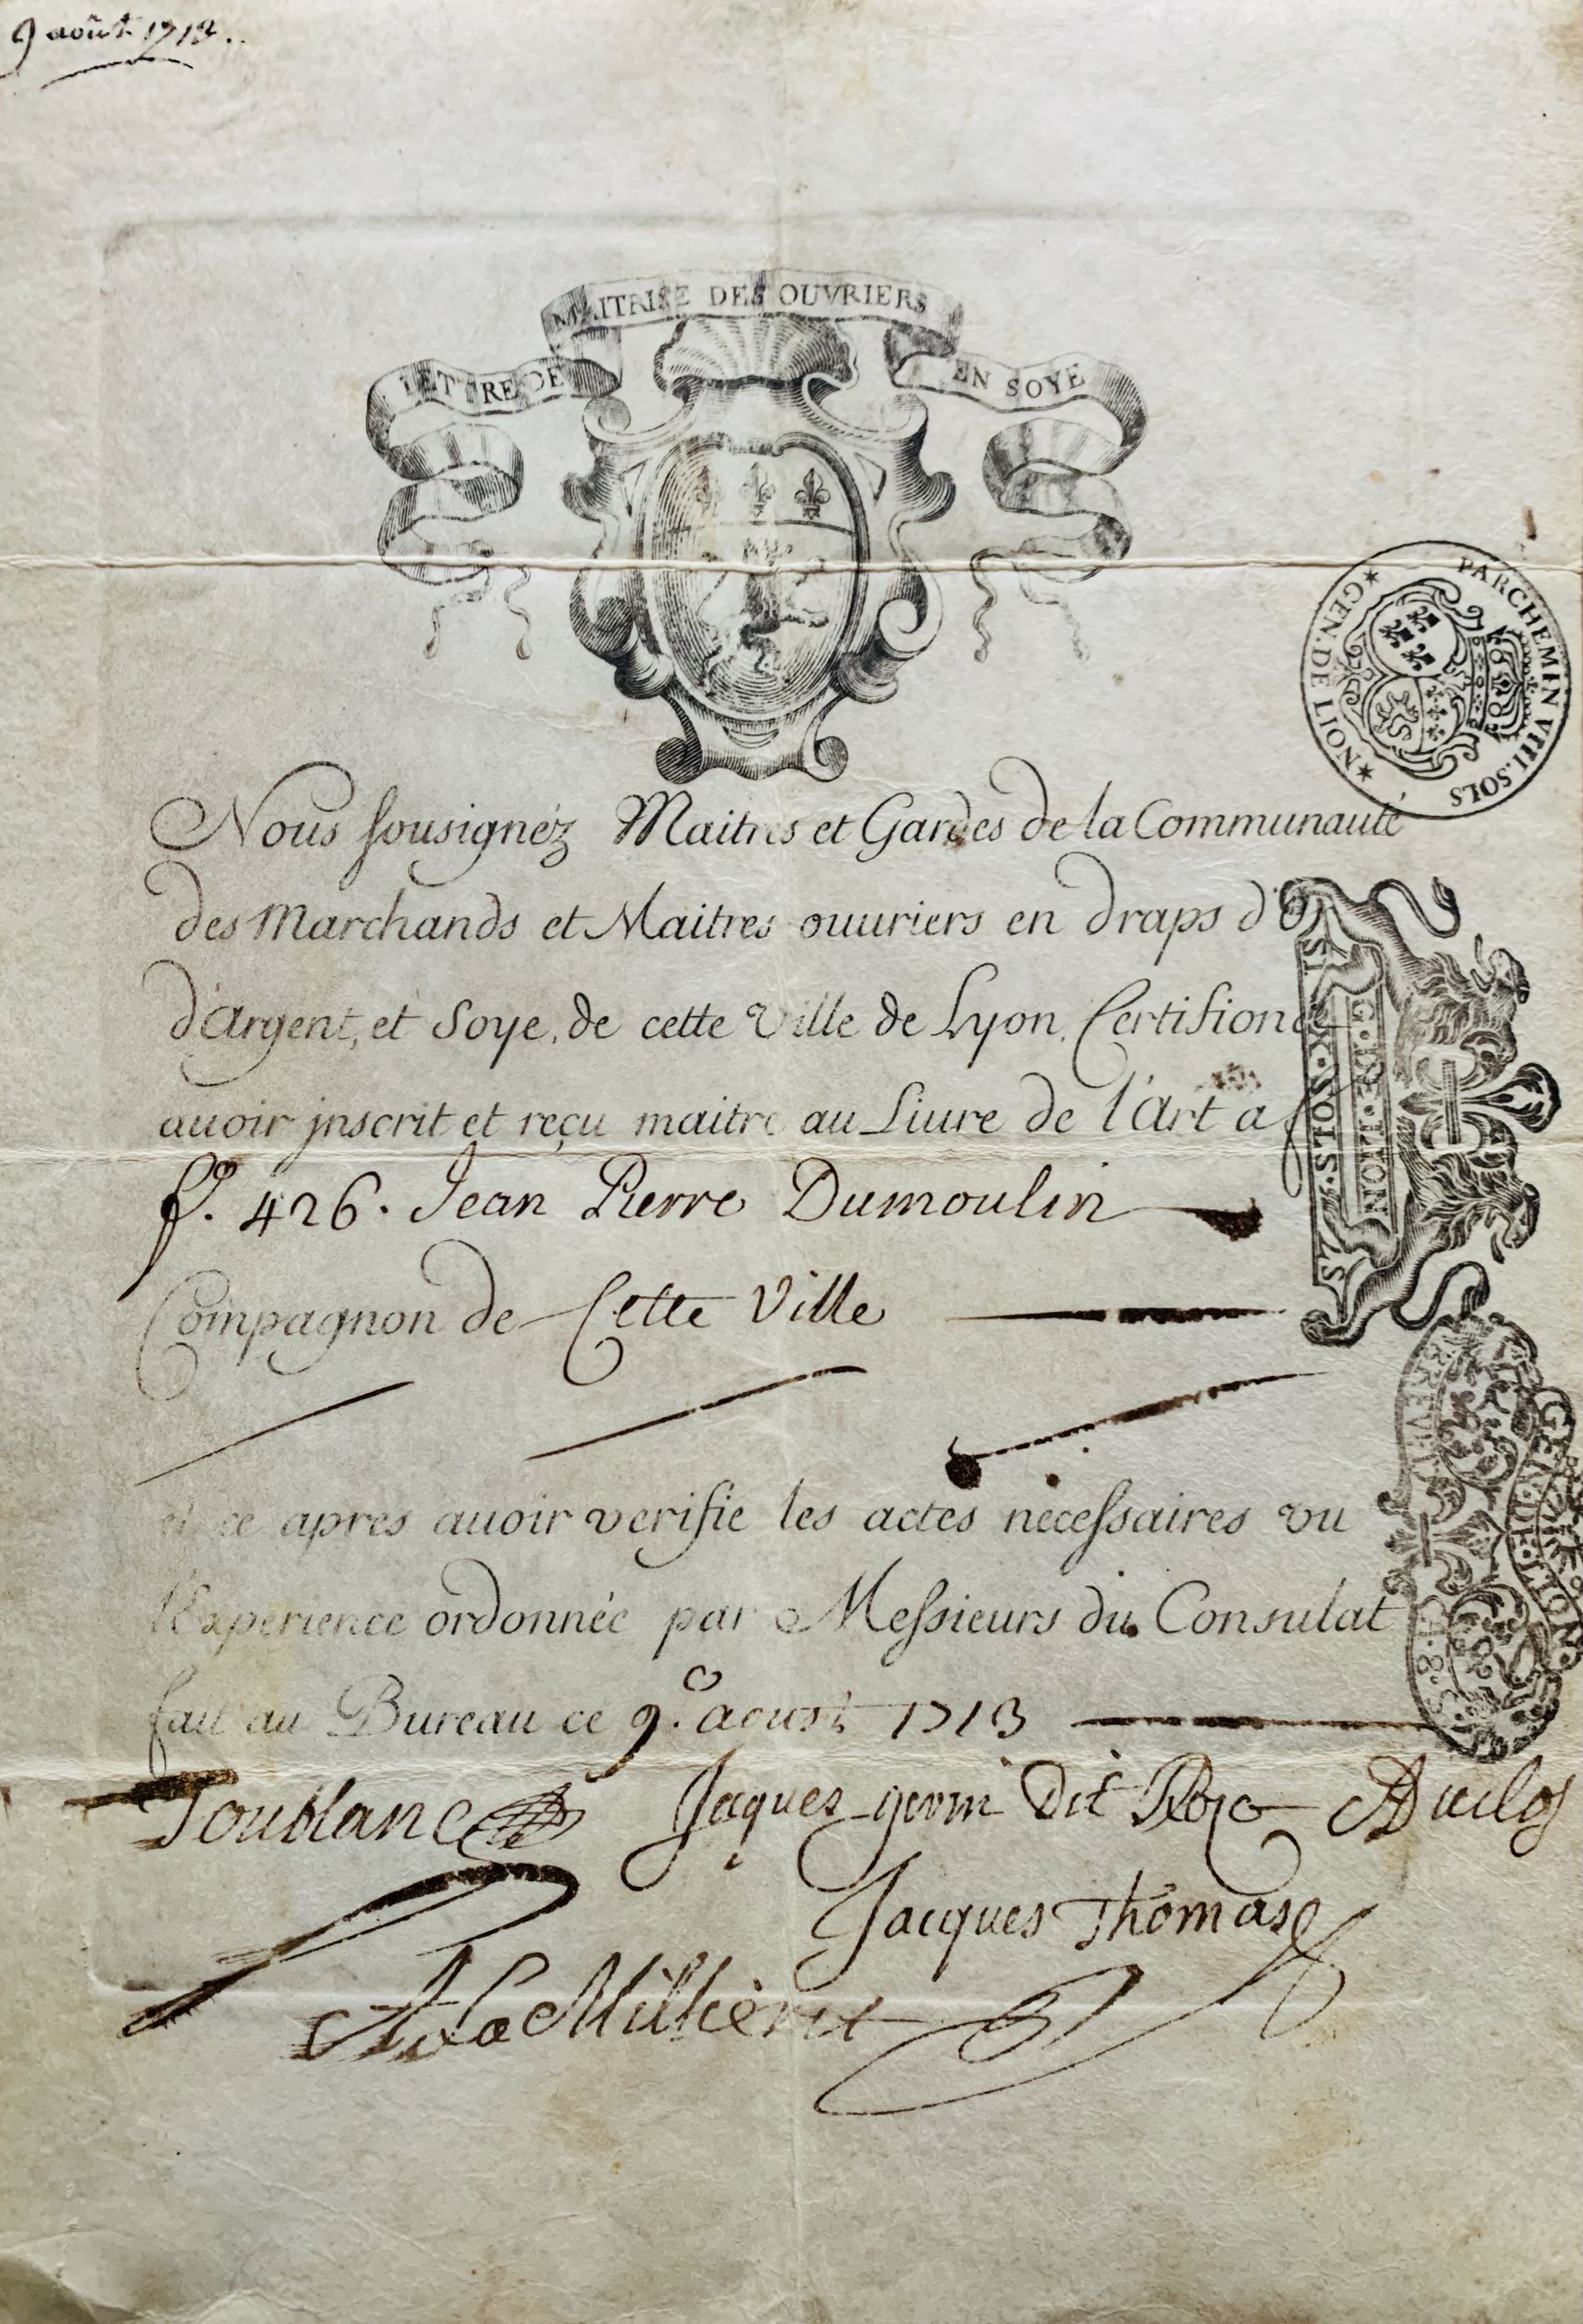 9 août 1713.
LETTRE DE MAITRISE DES OUVRIERS EN SOYE
PARCHEMIN VIII.SOLS
GEN·DE LION
Nous sousignéz Maitres et Gardes de la Communauté
des Marchands et Maitres ouuriers en draps d'O
d'Argent, et Soye, de cette Ville de Lyon, Certifions
auoir jnscrit et reçu maitre au Liure de l'Art a f
f.º 426. Jean Pierre Dumoulin
Compagnon de Cette Ville
SIX·SOLS·
G·DE·LION
et ce apres auoir verifie les actes necessaires vu
l'Experience ordonnée par Messieurs du Consulat
GEN·DE·LION
fait au Bureau ce 9.e aoust 1713
Toublanc Jacques Dit Duclos
Jacques Thomas